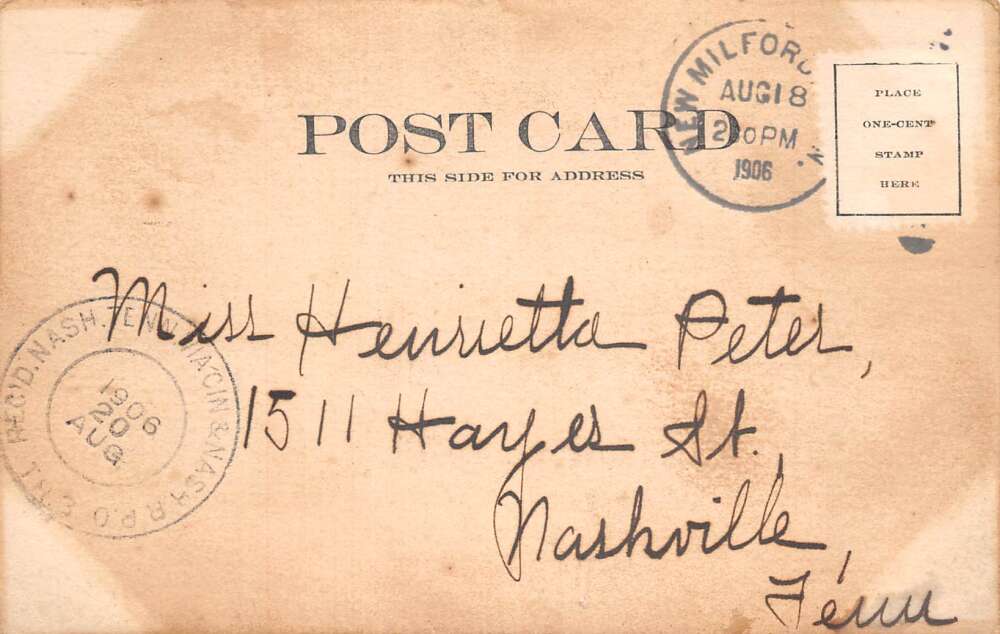 POST CARD
THIS SIDE FOR ADDRESS
NEW MILFORD
AUG 18
2 30 PM
1906
PLACE
ONE-CENT
STAMP
HERE
Miss Henrietta Peter,
1511 Hayes St.,
Nashville,
Tenn
REC'D. NASH. TENN. VIA CIN & NASH R.P.O.
1906
20
AUG